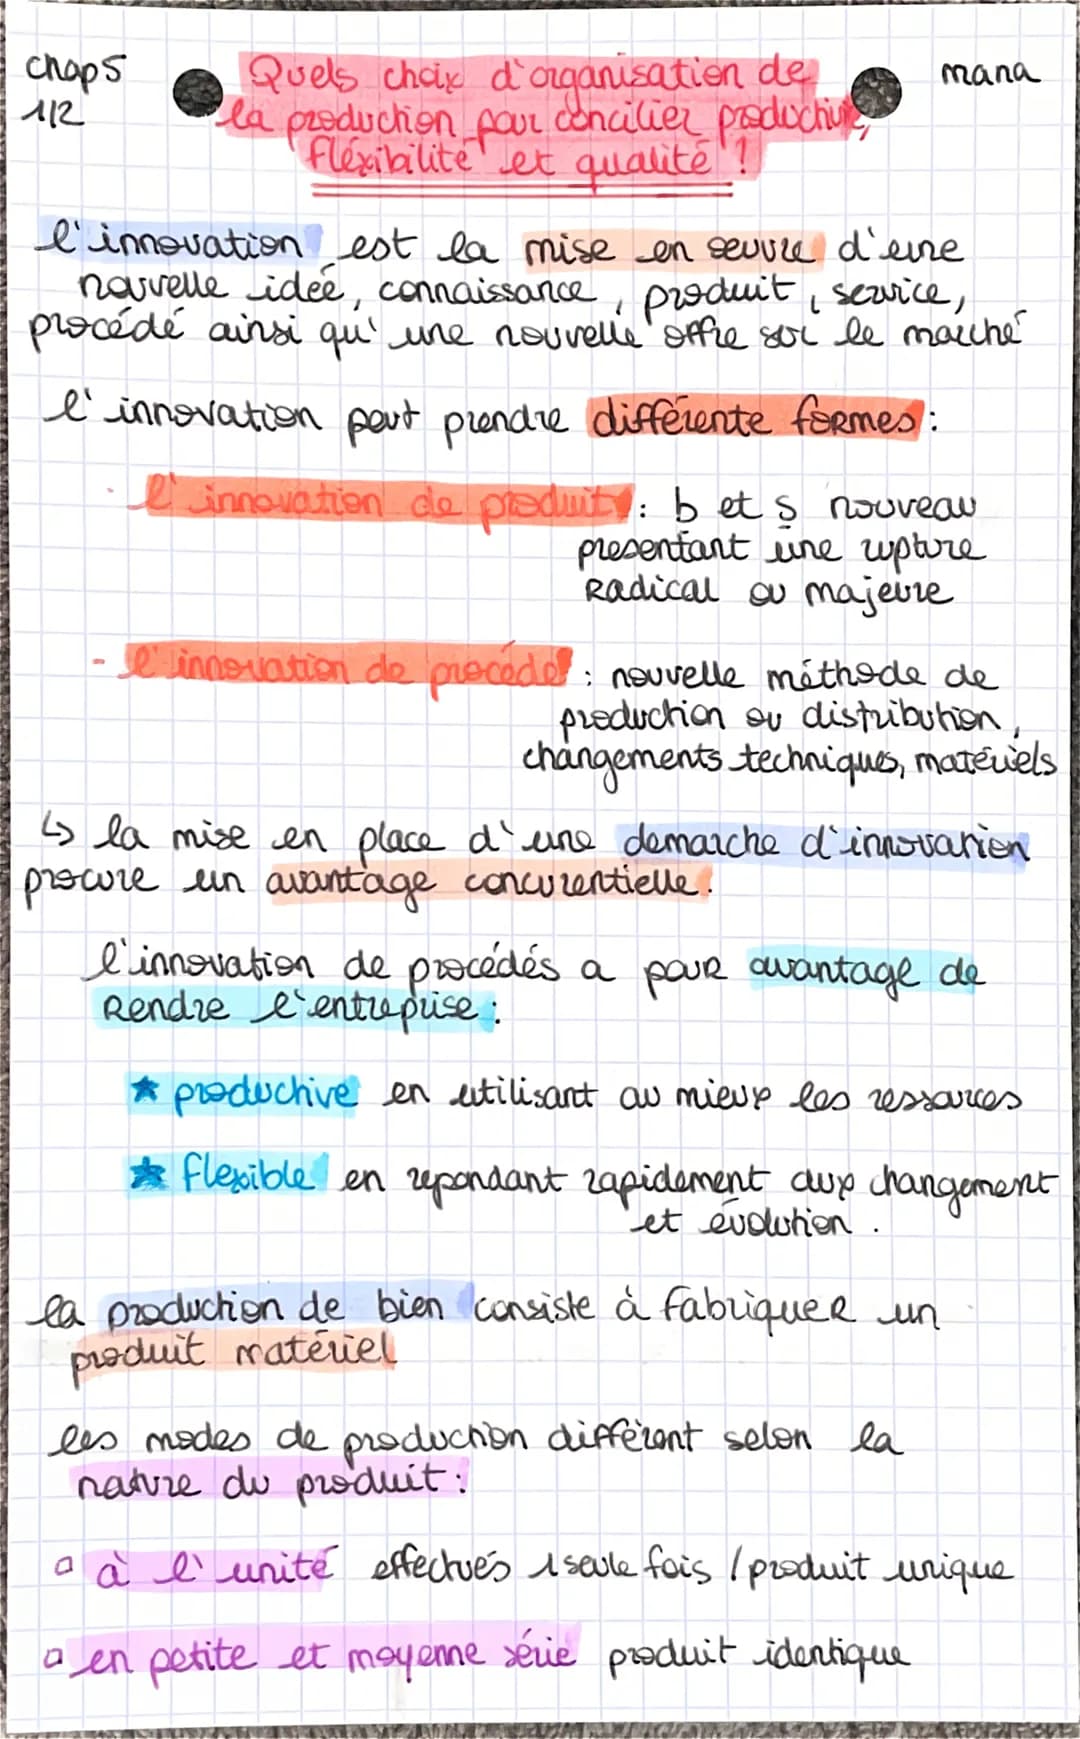 chap 5
1/2
mana
Quels choix d'organisation de
la production pour concilier productivité,
fléxibilité et qualité !
l'innovation est la mise en oeuvre d'une
nouvelle idée, connaissance, produit, service,
procédé ainsi qu'une nouvelle offre sur le marché
l'innovation peut prendre différente formes :
- l'innovation de produit : b et s nouveau
presentant une rupture
Radical ou majeure
- l'innovation de procédé : nouvelle méthode de
production ou distribution,
changements techniques, matériels
↳ la mise en place d'une demarche d'innovation
procure un avantage concurentielle.
l'innovation de procédés a pour avantage de
Rendre l'entreprise :
★ productive en utilisant au mieux les ressources
★ flexible en repondant rapidement aux changement
et évolution.
la production de bien consiste à fabriquer un
produit matériel
les modes de production différent selon la
nature du produit :
▫ à l'unité effectués 1 seule fois / produit unique
▫ en petite et moyenne série produit identique